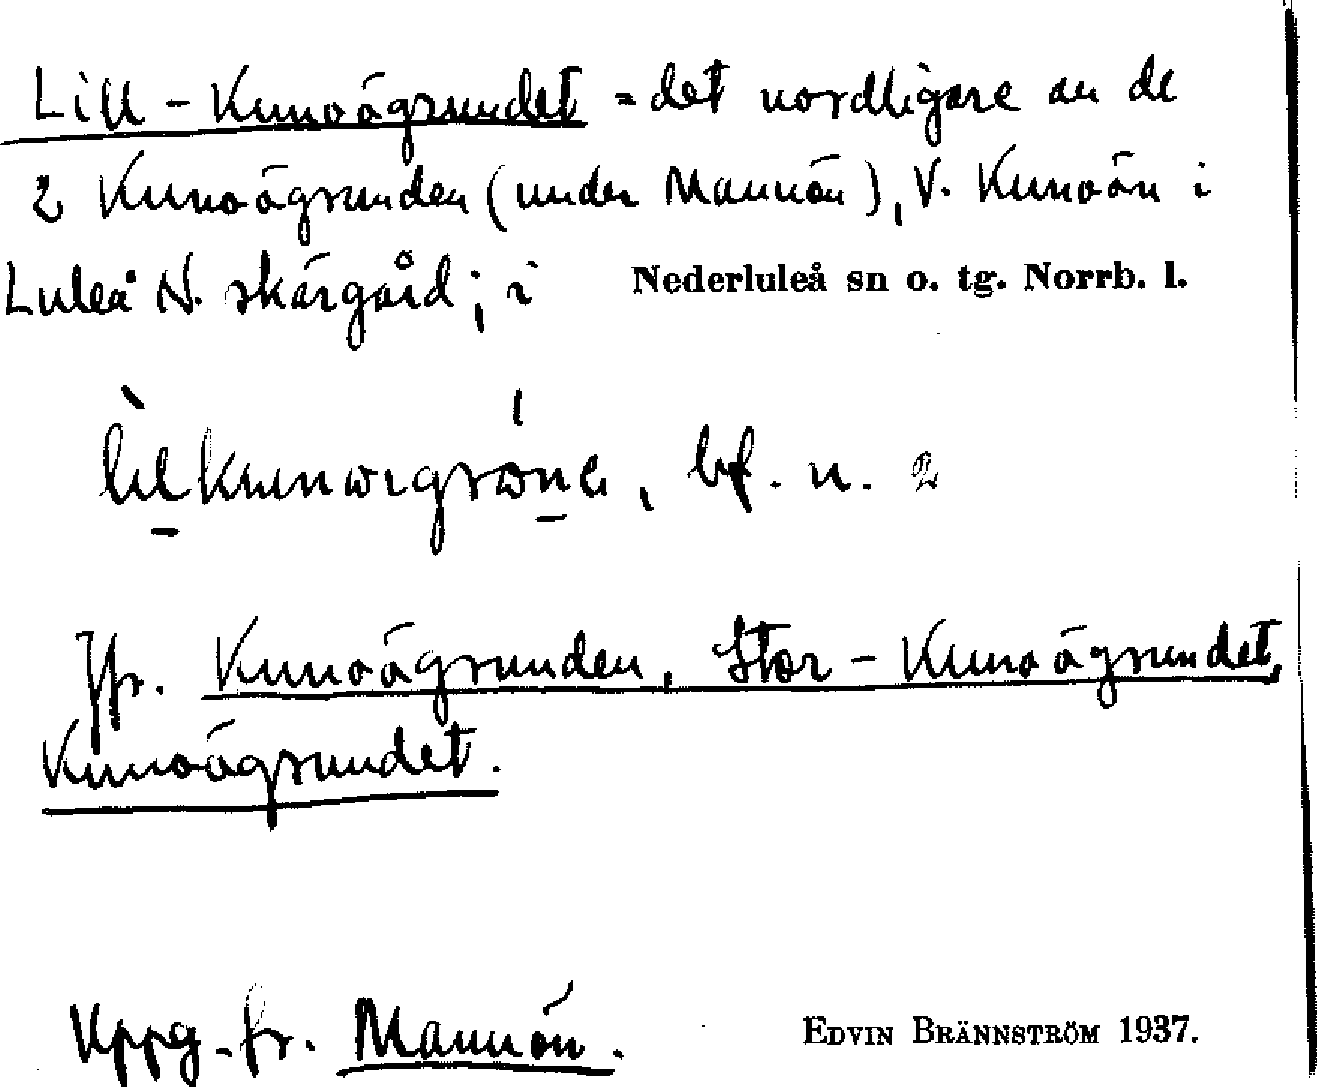 Lill-Kunoögrundet = det nordligare av de
2 Kunoögrunden (under Mannön), V. Kunoön i
Luleå N. skärgård; i Nederluleå sn o. tg. Norrb. l.
bf. n. 2
Jfr. Kunoögrunden, Stor-Kunoögrundet,
Kunoögrundet.
Uppg. fr. Mannön. EDVIN BRÄNNSTRÖM 1937.